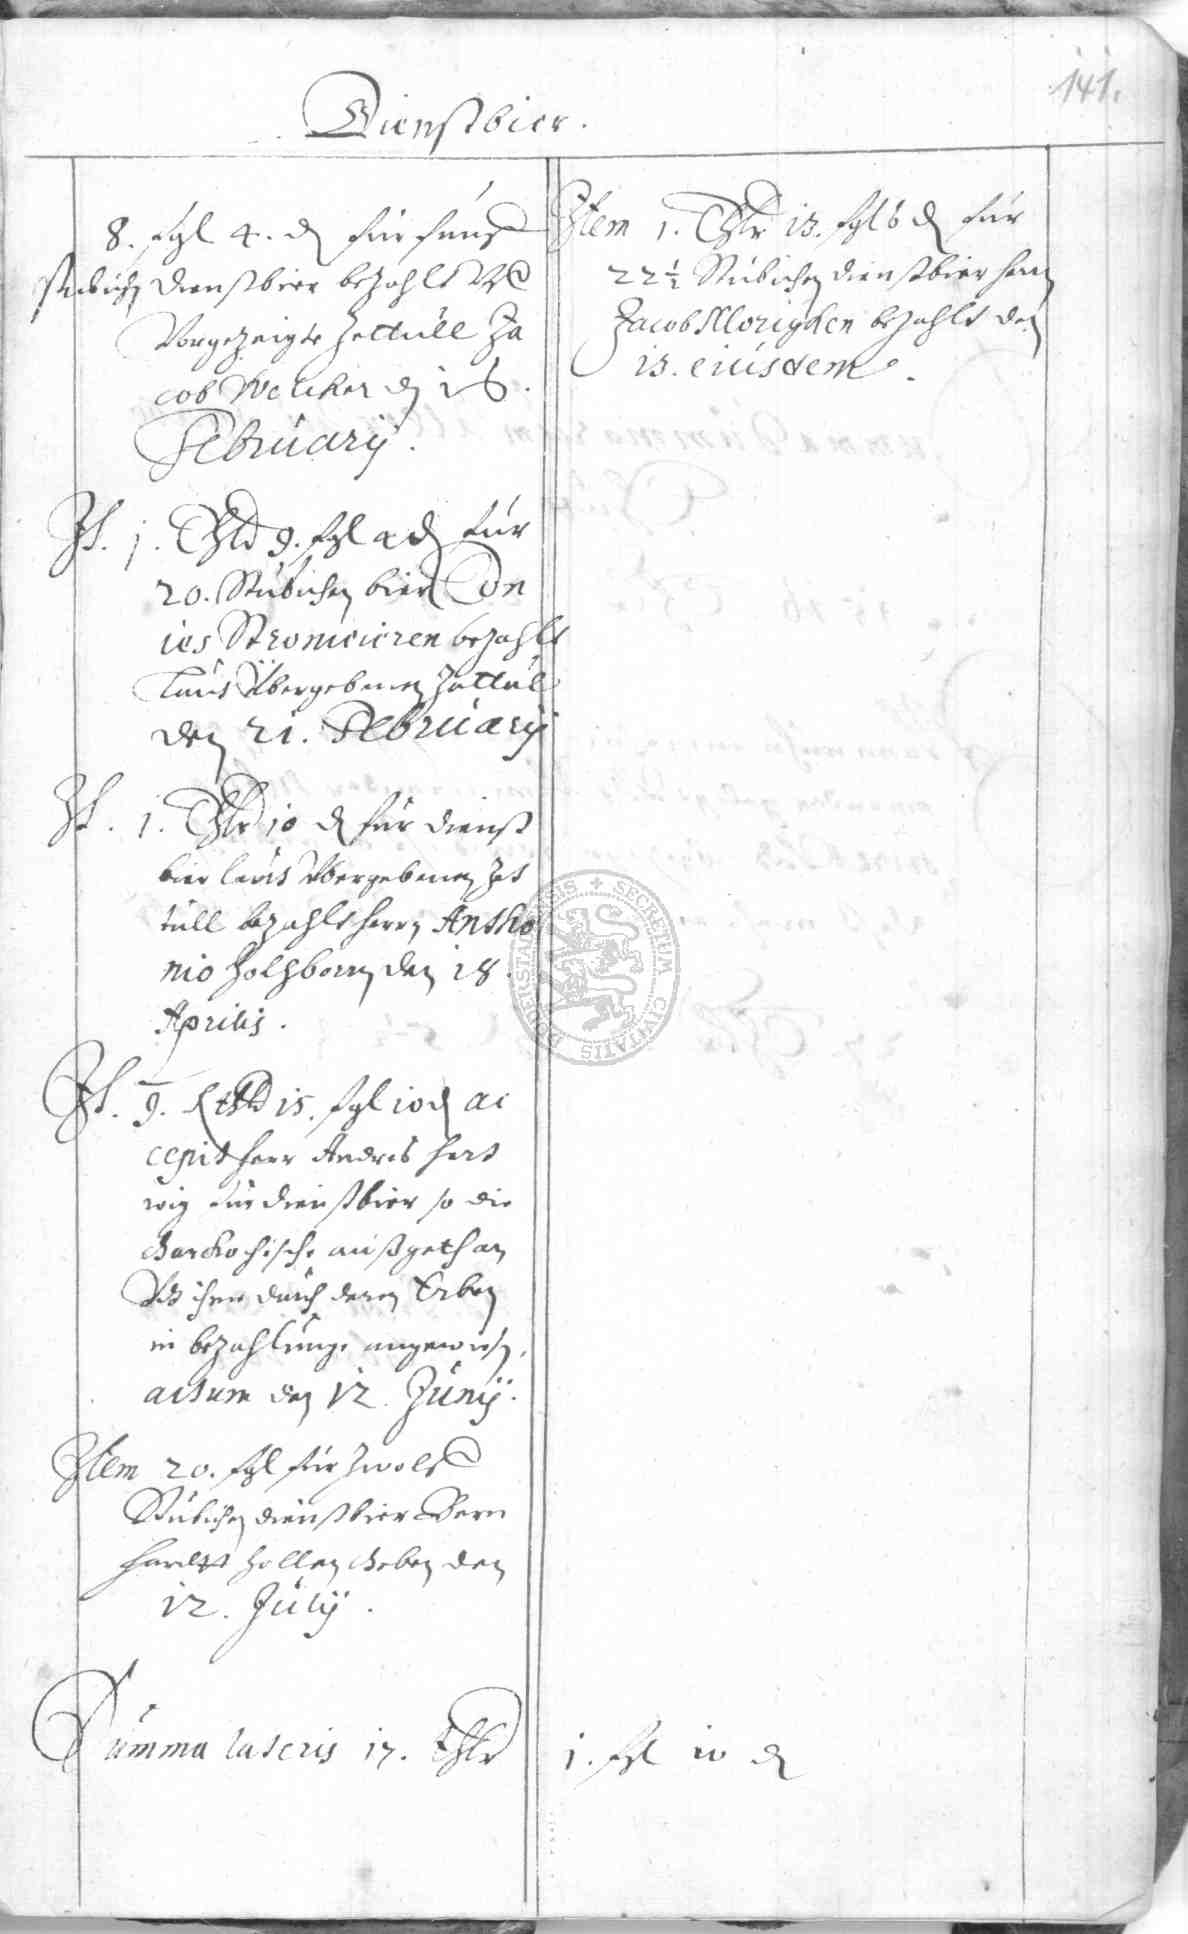 141.
Dienstbier.
8. fgl 4. d für fünf
stübichen dienstbier bezahlt
Vorgezeigte Zettull Ja
cob Wecker d 16.
February.
It. 1. Thlr 9. fgl 4 d für
20. Stübichen bier Don
ies Stromeieren bezahlt
lauts Übergebenen Zettul
den 21. February
It. 1. Thlr 10 d für dienst
bier lauts Übergebenen Zet
tull bezahlt herrn Antho
nio Holzborn den 18.
Aprilis.
It. 9. Rthlr 15. fgl 10 d ac
cepit herr Andres Hart
wig für dienstbier so die
außgethan
ihm durch deren Erben
in bezahlunge angewiesen,
actum den 12. Junij.
Item 20. fgl für zwolf
Stübichen dienstbier Bern
hardt Hollen geben den
12. Julij.
Item 1. Thlr 13. fgl 6 d für
22 1/2 Stübichen dienstbier herrn
Jacob Morighen bezahlt den
13. eiusdem.
Summa lateris 17. thlr 1. fgl 10 d
SECRETUM CIVITATIS